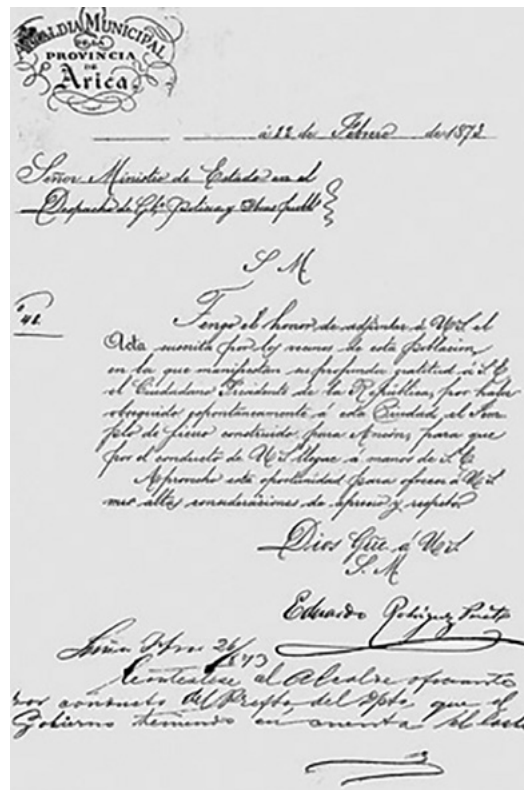 ALCALDIA MUNICIPAL
DE LA
PROVINCIA
DE
Arica
á 22 de Febrero de 1873
Señor Ministro de Estado en el
Despacho de Gbo Policia y Obras publs
S. M.
Tengo el honor de adjuntar á U.S. el
Acta suscrita por los vecinos de esta poblacion,
en la que manifiestan su profunda gratitud á S. E.
el Ciudadano Presidente de la República, por haber
obsequiado espontáneamente á esta Ciudad, el Tem
plo de fierro construido para Ancón, para que
por el conducto de U.S. llegue á manos de S. E.
Aprovecho esta oportunidad para ofrecer á U.S.
mis altas consideraciones de aprecio y respeto
Dios Gue á U.S.
S. M.
Eduardo Rodriguez
Lima 26/873
Contéstese al Alcalde oficiante
por conducto del Prefto del Dpto, que el
Gobierno teniendo en cuenta